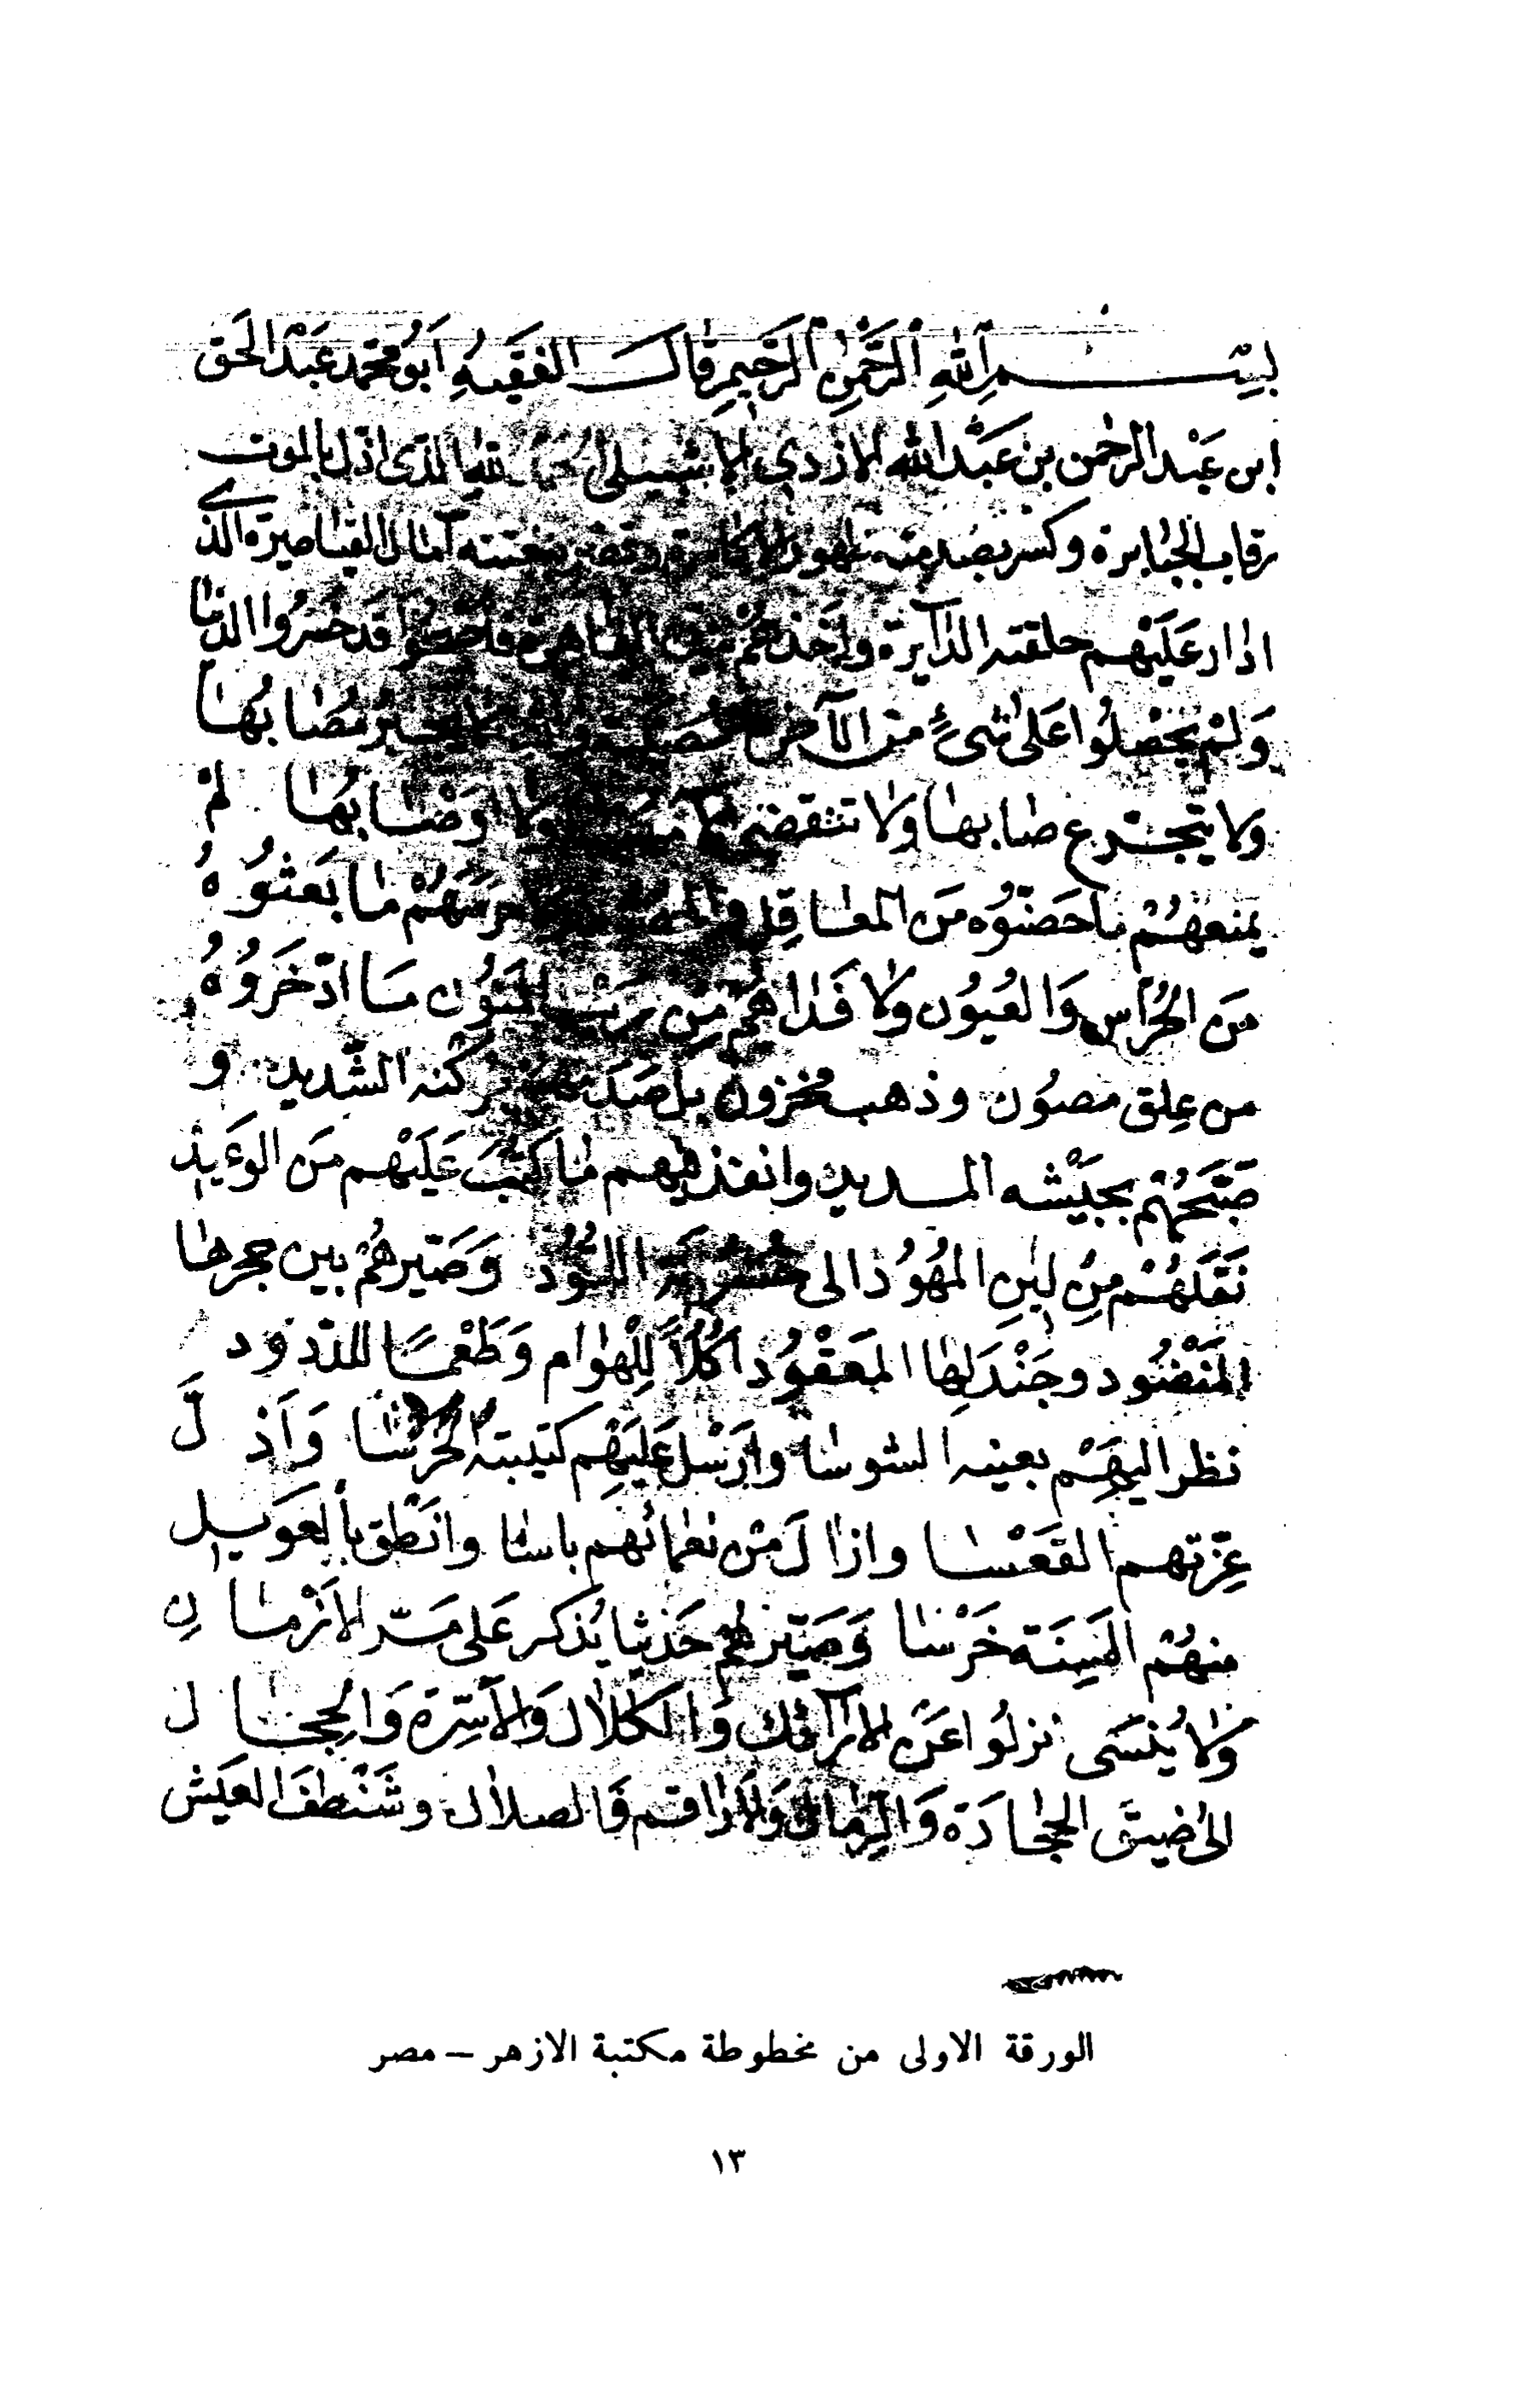 بسم الله الرحمن الرحيم قال الفقيه ابو محمد عبد الحق
ابن عبد الرحمن بن عبد الله الازدي الاشبيلي الذى اذل بالموت
رقاب الجبابرة وكسر بصدمته ظهور الاكاسرة وقصر ببغتته آمال القياصرة الذي
ادار عليهم حلقته الدآيرة واخذهم القاهرة قد خسروا الدنيا
ولم يحصلوا على شئ من الآخرة مصابها
ولا يتجرع صابها ولا تنقضي ولا اوصابها لم
يمنعهم ما حصنوه من المعاقل ولا حرسهم ما بعثوه
من الحراس والعيون ولا فداهم من ريب المنون ما ادخروه
من علق مصون وذهب مخزون بل بركنه الشديد و
صبحهم بجيشه المديد وانفذ فيهم ما كتب عليهم من الوعيد
نقلهم من لين المهود الى اللحود وصيرهم بين حجرها
المنضود وجندلها المعقود اكلا للهوام وطعما للدود
نظر اليهم بعينه الشوسا وارسل عليهم كتيبته الخرسا واذل
عزتهم القعسا وازال من نعمائهم باسا وانطق بالعويل
منهم السنة خرسا وصيرهم حديثا يذكر على مر الازمان
ولا ينسى نزلوا عن الارائك والكلال والاسرة والحجال
الى ضيق الحجارة والرمال والاراقم والصلال وشظف العيش
الورقة الاولى من مخطوطة مكتبة الازهر – مصر
١٣